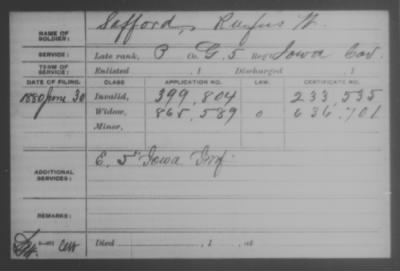 NAME OF SOLDIER: Safford, Rufus W.
SERVICE: Late rank, P Co. G, 5 Reg't Iowa Cav.
TERM OF SERVICE: Enlisted , 1 Discharged , 1
DATE OF FILING. CLASS. APPLICATION NO. LAW. CERTIFICATE NO.
1880 June 30 Invalid, 399.804 233.535
Widow, 868.589 0 636.701
Minor,
ADDITIONAL SERVICES: E. 5" Iowa Inf.
REMARKS:
Died , 1 , at